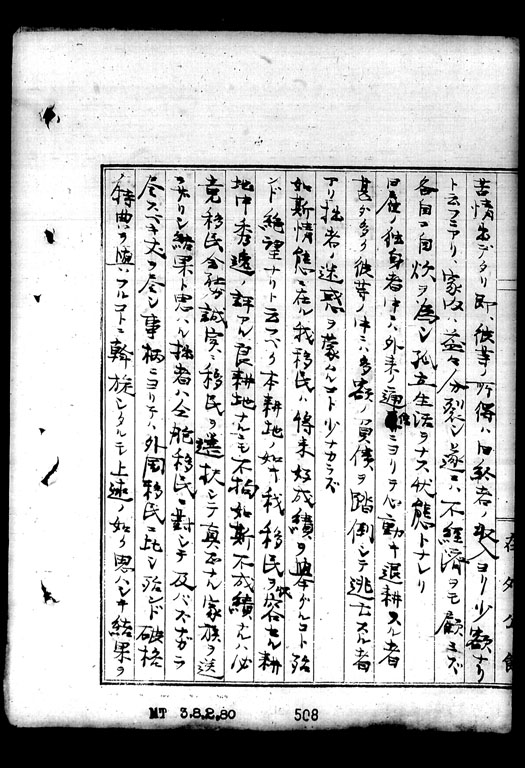 苦情出デタリ即、彼等ノ所得ハ旧給者ノ収入ヨリ少額ナリ
ト云フニアリ、家内ハ益々分裂シ遂ニハ不経済ヲモ顧ミズ
各自ニ自炊ヲ為シ孤立生活ヲナス状態トナレリ
ノ独身者中ニハ外来ノ ニヨリテ心動キ退耕スル者
甚ダ多ク彼等ノ中ニハ多額ノ負債ヲ踏倒シテ逃亡スル者
アリ拙者ノ迷惑ヲ蒙ムルコト少ナカラズ
如斯情態ニ在ル我移民ハ将来好成績ヲ挙グルコト殆
ンド絶望ナリト云フベク本耕地ノ如キ我移民ヲ容セル耕
地中秀逸ノ評アル良耕地ナルニモ不拘如斯不成績ナルハ必
竟移民会社ガ誠実ニ移民ヲ選択シテ真正ナル家族ヲ送
ラザリシ結果ト思ハル拙者ハ全航移民ニ対シテ及バズナガラ
尽スベキ丈ヲ尽シ事柄ニヨリテハ外国移民ニ比シ殆ンド破格
ノ特典ヲ フルコトニ斡旋シタルモ上述ノ如ク思ハシキ結果ヲ
在外公館
MT 3.8.2.80
508